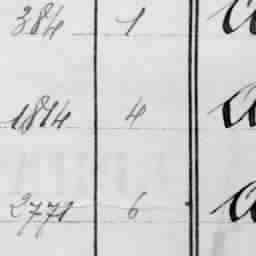 384 1 a
1814 4 a
2771 6 a